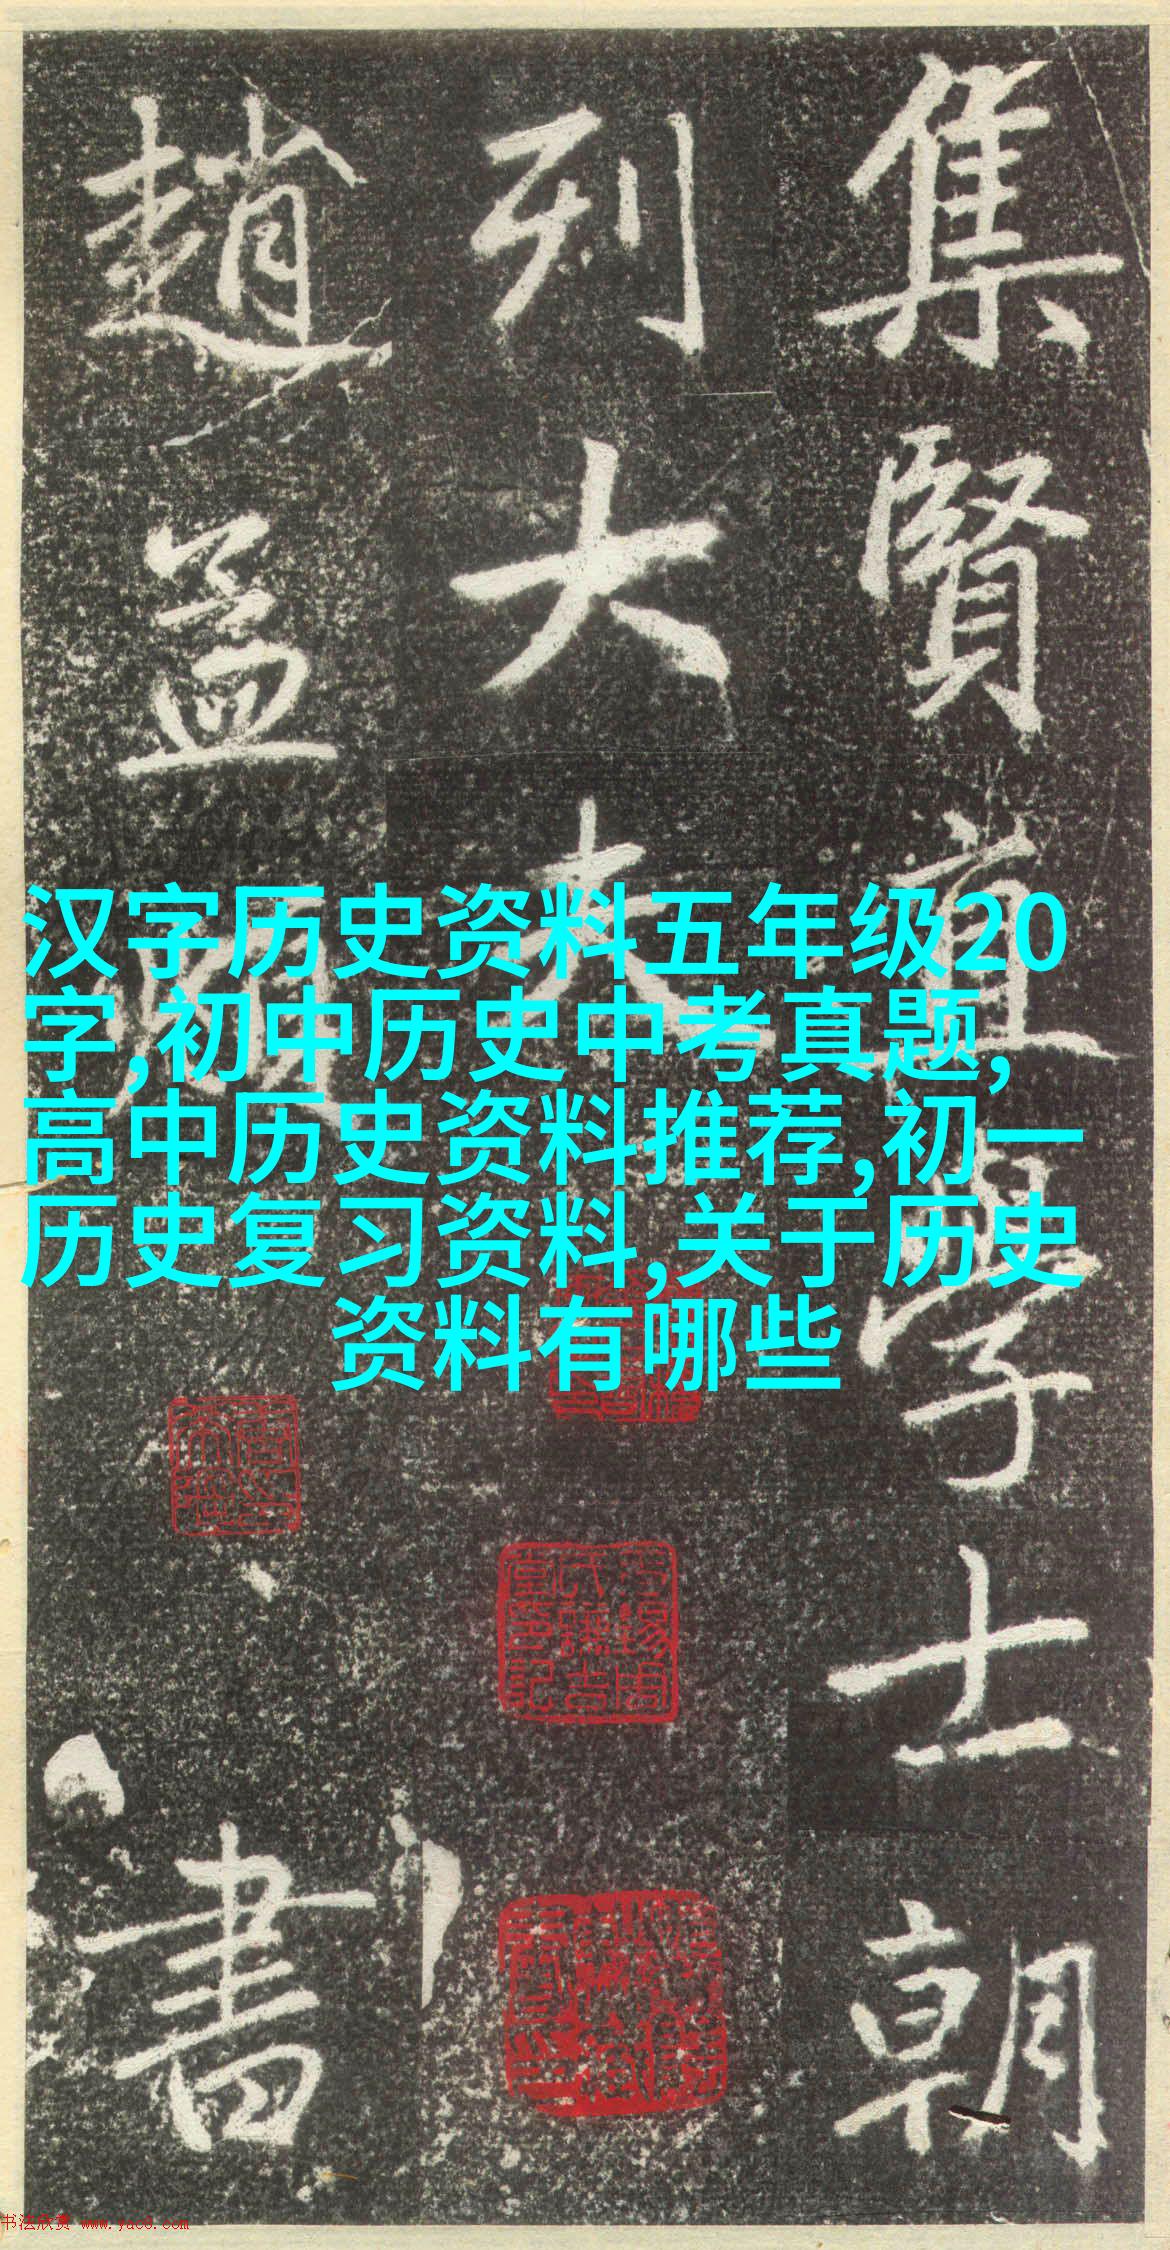 集賢直學士朝
列大夫
趙孟頫
書
汉字历史资料五年级20
字,初中历史中考真题,
高中历史资料推荐,初一
历史复习资料,关于历史
资料有哪些
书法欣赏 www.yac8.com